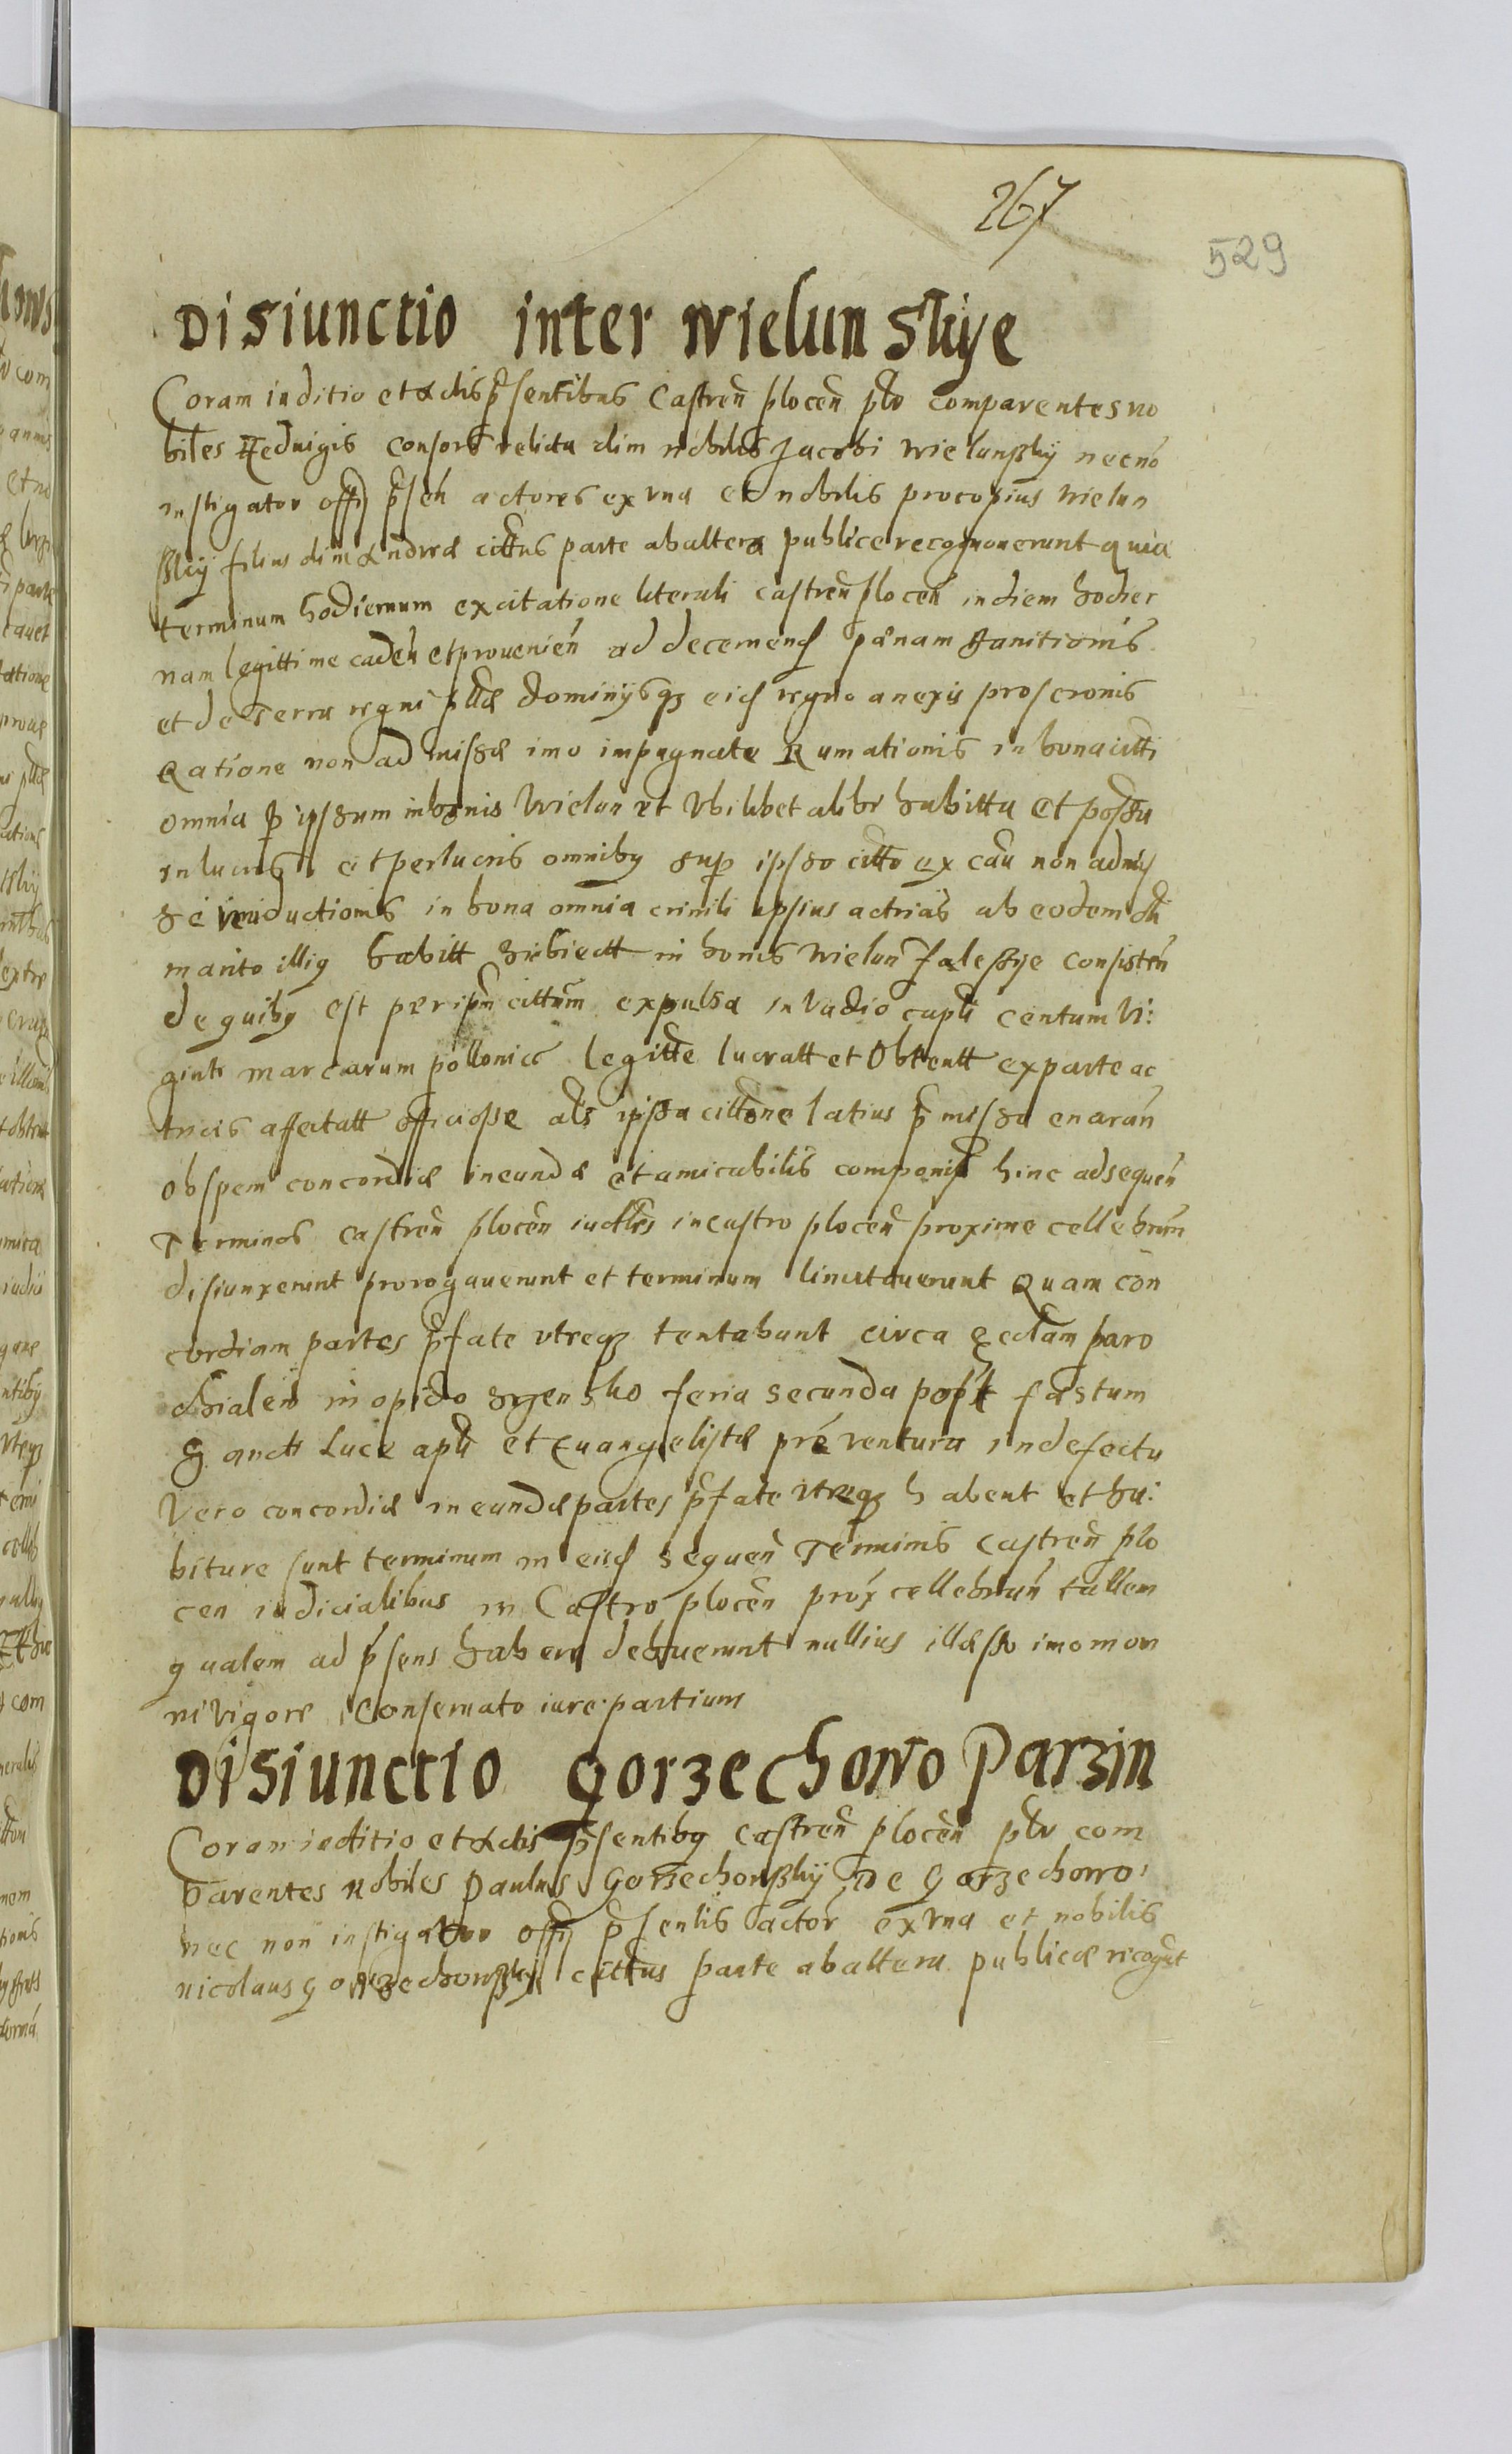 267
529
Disiunctio inter Wielunskye
Coram iuditio et Actis p̃sentibus Castren̄ plocen̄ plr̄ comparentes no
biles Heduigis consors relicta olim nobilis Jacobi Wielunsky necnō
instigator offy p̃sen̄ actores ex vna et nobilis procopius Wielun
sky filius olim Andreæ cittus parte ab altera publice recognouerunt quia
terminum hodiernum ex citatione literali castren̄ plocen̄ in diem hodier
nam legittime caden̄ et prouenien̄ ad decernend pænam banitionis
et de terra regni pllæ dominysqz eid regno anexis proscronis
Ratione non admissæ imo impugnate Rumationis in bona citti
omnia p ipssum in bonis Wielun et Vbilibet alibi habitta et possa
in lucris et perlucris omniby sup ipsso citto ex cau non admis
sē induictionis in bona omnia crinili ipsius actrias ab eodem oli
marito illig habitt subiectt in bonis Wielun Zaleskye consisten̄
de quiby est per ipm̄ cittum expulsa in Vadio capli centum Vi:
ginti marcarum pollonics legitte lucratt et Obtentt ex parte ac
tricis affectatt officiosse als ipssa cittōne latius p̃missa enaran̄
ob spem concordiæ ineundæ et amicabilis componis hinc ad sequen̄
Terminos castren̄ plocen̄ iuctles in castro plocen̄ proxime cellebrān
disiunxerunt prorogauerunt et terminum limitauerunt Quam con
cordiam partes p̃fate vtreqz tentabunt circa Ecclam paro
chialem in opido Srzensko feria secunda post fæstum
S ancti Luce apli et Euangelistæ pré ventura in defectu
Vero concordiæ ineundæ partes p̃fate vtreqz habent et ha:
biture sunt terminum in eisd sequen̄ Terminis castren̄ plo
cen iudicialibus in Castro plocen̄ prox cellebrān̄ tallem
qualem ad p̃sens habere debuerunt nullius illæsso imo mon
ni vigore Conseruato iure partium
Disiunctio Gorzechowo Parzin
Coram iuditio et Actis p̃sentiby castren̄ plocen̄ plr̄ com
parentes nobiles Paulus Gorzechowsky De Gorzechowo
nec non instigator offy p̃sentis actor ex vna et nobilis
nicolaus Gorzechowsky cittus parte ab altera publicæ recogt